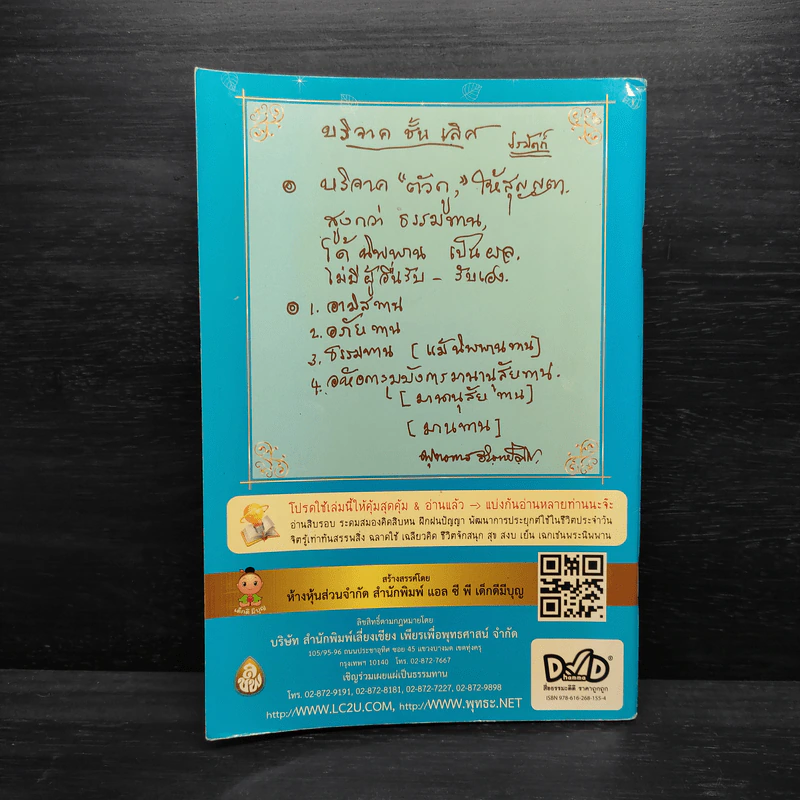 บริจาค ชั้น เลิศ
ปรมัตถ์
บริจาค "ตัวกู," ให้สุญญตา.
สูงกว่า ธรรมทาน,
ได้ นิพพาน เป็น ผล,
ไม่มีผู้อื่นรับ – รับเอง.
1. อามิสทาน
2. อภัยทาน
3. ธรรมทาน [แม้นิพพานทาน]
4. อหังการมมังการมานานุสัยทาน.
[มานานุสัย ทาน]
[มานทาน]
โปรดใช้เล่มนี้ให้คุ้มสุดคุ้ม & อ่านแล้ว → แบ่งกันอ่านหลายท่านนะจ๊ะ
อ่านสิบรอบ ระดมสมองคิดสิบหน ฝึกฝนปัญญา พัฒนาการประยุกต์ใช้ในชีวิตประจำวัน
จิตรู้เท่าทันสรรพสิ่ง ฉลาดใช้ เฉลียวคิด ชีวิตจักสนุก สุข สงบ เย็น เฉกเช่นพระนิพพาน
สร้างสรรค์โดย
ห้างหุ้นส่วนจำกัด สำนักพิมพ์ แอล ซี พี เด็กดีมีบุญ
เด็กดี มีบุญ
ลิขสิทธิ์ตามกฎหมายโดย
บริษัท สำนักพิมพ์เลี่ยงเชียง เพียรเพื่อพุทธศาสน์ จำกัด
105/95-96 ถนนประชาอุทิศ ซอย 45 แขวงบางมด เขตทุ่งครุ
กรุงเทพฯ 10140 โทร. 02-872-7667
เชิญร่วมเผยแผ่เป็นธรรมทาน
โทร. 02-872-9191, 02-872-8181, 02-872-7227, 02-872-9898
http://WWW.LC2U.COM, http://WWW.พุทธะ.NET
DMD
hamma
®
สื่อธรรมะดีดี ราคาถูกถูก
ISBN 978-616-268-155-4